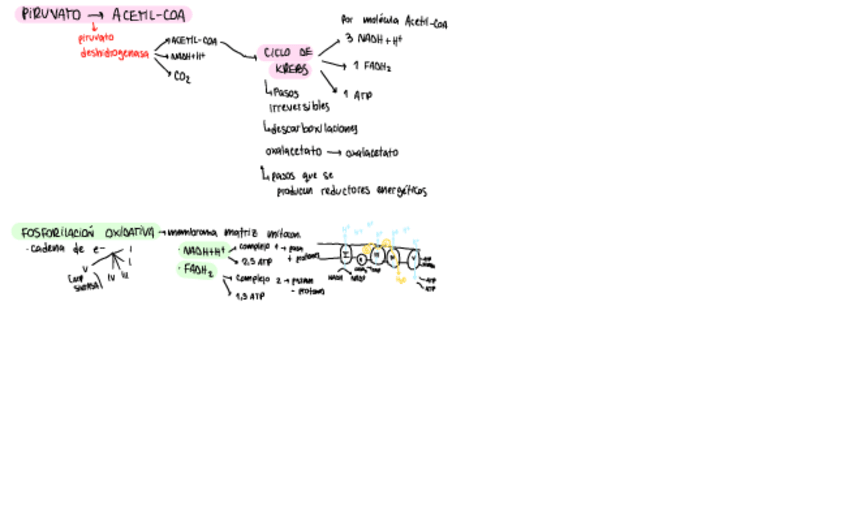 PIRUVATO → ACETIL-COA
piruvato
deshidrogenasa
ACETIL-COA
NADH+H+
CO2
CICLO DE
KREBS
Por molécula Acetil-CoA
3 NADH+H+
1 FADH2
1 ATP
↳Pasos
irreversibles
↳descarboxilaciones
oxalacetato → oxalacetato
↳pasos que se
producen reductores energéticos
FOSFORILACIÓN OXIDATIVA → membrana matriz mitocon.
·cadena de e-
I
I
III
IV
V
· NADH+H+
complejo 1 →
+ protones
2,5 ATP
· FADH2
complejo 2 →
- protones
1,5 ATP
I
NADH
ATP